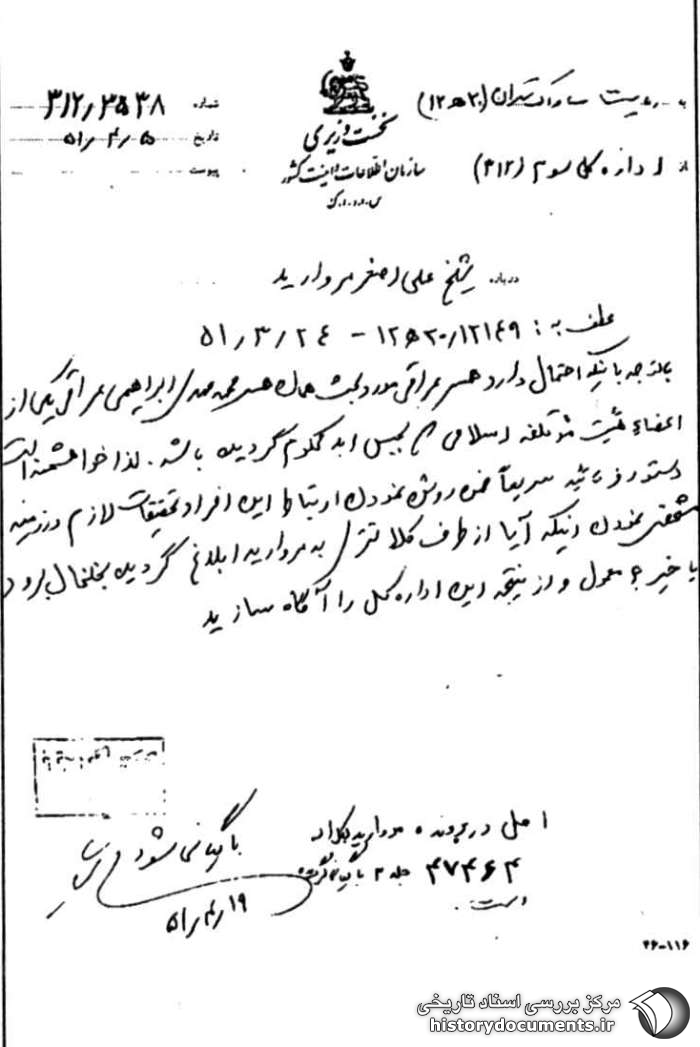 به ریاست ساواک تهران (۲۰ ه ۱۲)
از اداره کل سوم (۳۱۲)
نخست وزیری
سازمان اطلاعات و امنیت کشور
س.ا.و.ا.ک
شماره ۳۱۲/۳۵۳۸
تاریخ ۵۱/۴/۵
پیوست
درباره شیخ علی اصغر مروارید
عطف به: ۱۲۱۴۹/۲۰ ه ۱۲ - ۵۱/۳/۲۴
باتوجه باینکه احتمال دارد همسر عراقی مورد بحث همان همسر محمد مهدی ابراهیمی عراقی یکی از
اعضاء هیئت مؤتلفه اسلامی که بحبس ابد محکوم گردیده باشد. لذا خواهشمند است
دستور فرمائید سریعاً ضمن روشن نمودن ارتباط این افراد تحقیقات لازم در زمینه
مشخص نمودن اینکه آیا از طرف کلانتری به مروارید ابلاغ گردیده بخلخال برود
یا خیر؟ معمول و از نتیجه این اداره کل را آگاه سازید
اصل در پرونده مروارید بکلاسه
۴۷۴۶۴ جلد ۳ بایگانی گردیده
است.
بایگانی شود
۵۱/۴/۱۹
۲۶-۱۱۶
مرکز بررسی اسناد تاریخی
historydocuments.ir